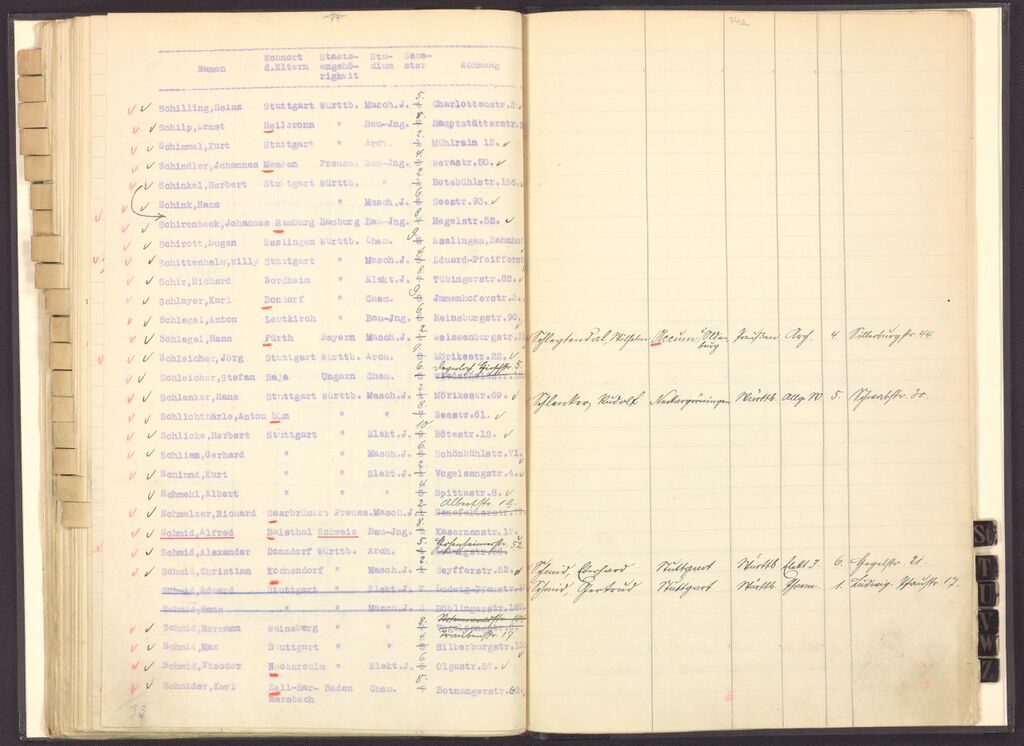 -74-
Wohnort Staats- Stu- Seme-
Namen d.Eltern angehö- dium ster Wohnung
rigkeit
5.
Schilling,Heinz Stuttgart Württb. Masch.J. Charlottenstr.3.
8.
Schilp,Ernst Heilbronn " Bau-Jng. Hauptstätterstr.
2.
Schimmel,Kurt Stuttgart " Arch. Mühlrain 12.
4.
Schindler,Johannes Mengen Preuss. Bau-Jng. Werastr.50.
2.
Schinkel,Herbert Stuttgart Württb. " Rotebühlstr.156.
6.
Schink,Hans " Masch.J. Seestr.93.
8.
Schirenbeck,Johannes Hamburg Hamburg Bau-Jng. Hegelstr.52.
9.
Schirott,Eugen Esslingen Württb. Chem. Esslingen,Bahnhof
4.
Schittenhelm,Willy Stuttgart " Masch.J. Eduard-Pfeifferst
8.
Schiz,Richard Nordheim " Elekt.J. Tübingerstr.82.
9.
Schlayer,Karl Bondorf " Chem. Jmmenhoferstr.3.
6.
Schlegel,Anton Leutkirch " Bau-Jng. Reinsburgstr.90.
2.
Schlegel,Hans Fürth Bayern Masch.J. Weissenburgstr.
8.
Schleicher,Jörg Stuttgart Württb. Arch. Mörikestr.22.
6. Degerloch 5.
Schleicher,Stefan Baja Ungarn Chem.
2
Schlenker,Hans Stuttgart Württb. Masch.J. Mörikestr.69.
8
Schlichthärle,Anton Ulm " " Seestr.61.
10.
Schlicke,Herbert Stuttgart " Elekt.J. Rötestr.12.
6.
Schliem,Gerhard " " Masch.J. Schönbühlstr.71.
2.
Schlund,Kurt " " Elekt.J. Vogelsangstr.4.
4
Schmehl,Albert " " " Spittastr.8.
2. Albertstr. 1a.
Schmelzer,Richard Saarbrücken Preuss. Masch.J. Senefelderstr.
8.
Schmid,Alfred Balsthal Schweiz Bau-Jng. Kasernenstr.17.
5. 52
Schmid,Alexander Donzdorf Württb. Arch.
2.
Schmid,Christian Kochendorf " Masch.J. Seyfferstr.52.
Schmid,Eduard Stuttgart " Elekt.J. 7 Ludwig-
Schmid,Hans " " Masch.J. 3 Böblingerstr.
8. 
Schmid,Hermann Weinsberg " " Vogelsangstr.
4. Traubenstr. 17
Schmid,Max Stuttgart " " Silberburgstr.
6
Schmid,Theodor Neckarsulm " Elekt.J. Olgastr.57.
8.
Schmider,Karl Zell-Har- Baden Chem. Botnangerstr.62.
mersbach
33
74a
Schlagtendal Wilhelm Accum Olden- Preußen Arch. 4. Silberburgstr. 44.
burg
Schlenker, Rudolf Neckargröningen Württb. Allg. W 5. Schwabstr. 30.
Schmid, Eberhard Stuttgart Württb. Elekt. J 6. Hegelstr. 21.
Schmid, Gertrud Stuttgart Württb. Pharm. 1. Ludwig-Pfaustr. 17.
S
T
U
V
W
Z